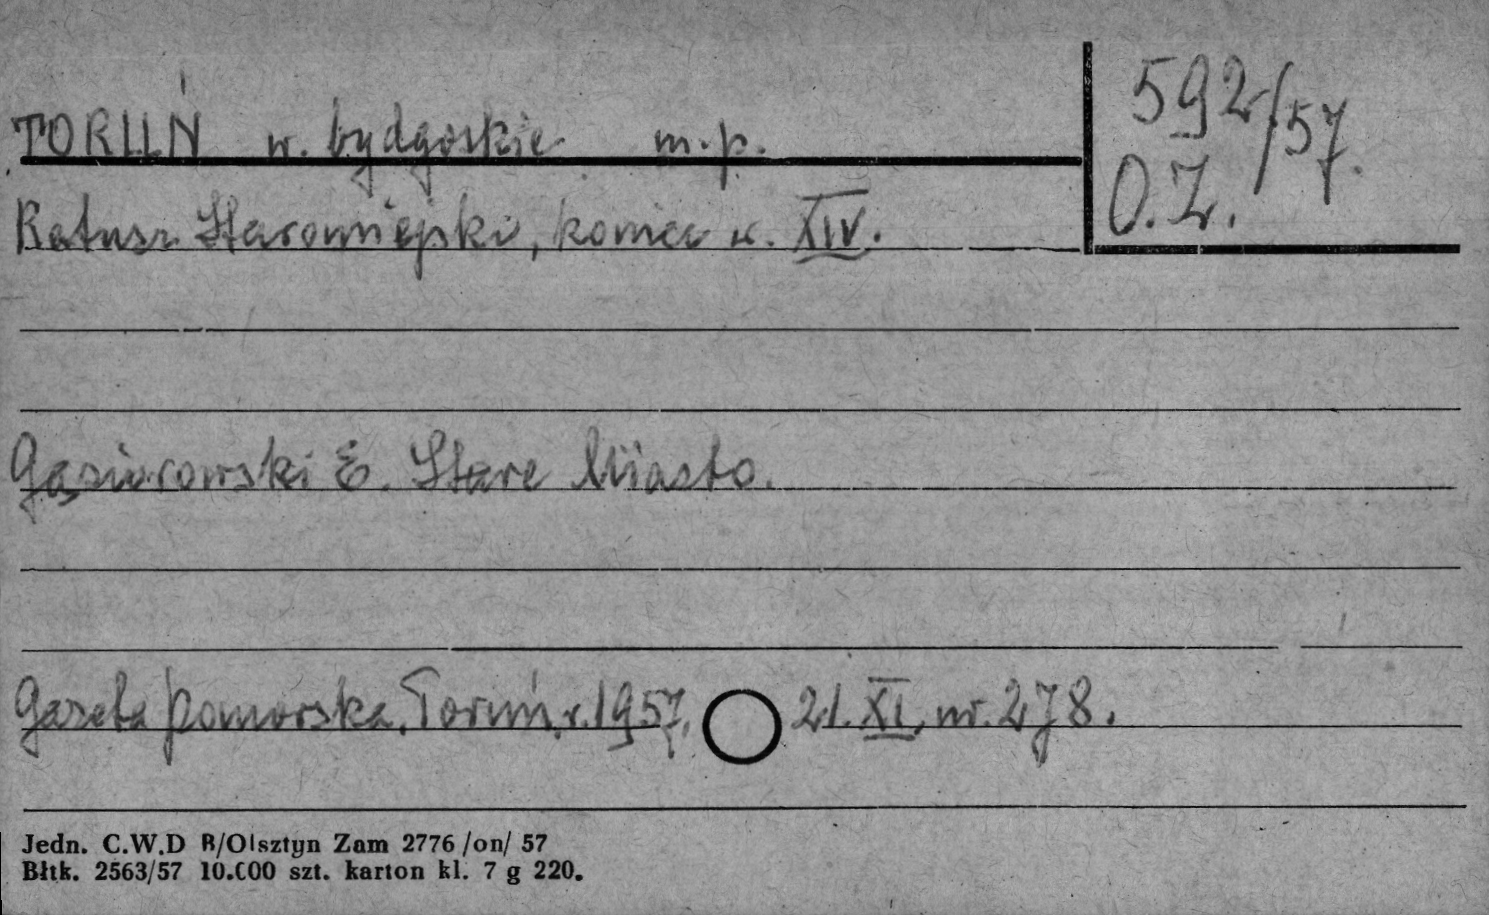 TORUŃ w. bydgoskie m.p.
592/57.
O.Z.
Ratusz Staromiejski, koniec w. XIV.
Gąsiorowski E. Stare Miasto.
Gazeta Pomorska, Toruń, r. 1957, 21. XI, nr. 278.
Jedn. C.W.D R/Olsztyn Zam 2776 /on/ 57
Błtk. 2563/57 10.000 szt. karton kl. 7 g 220.